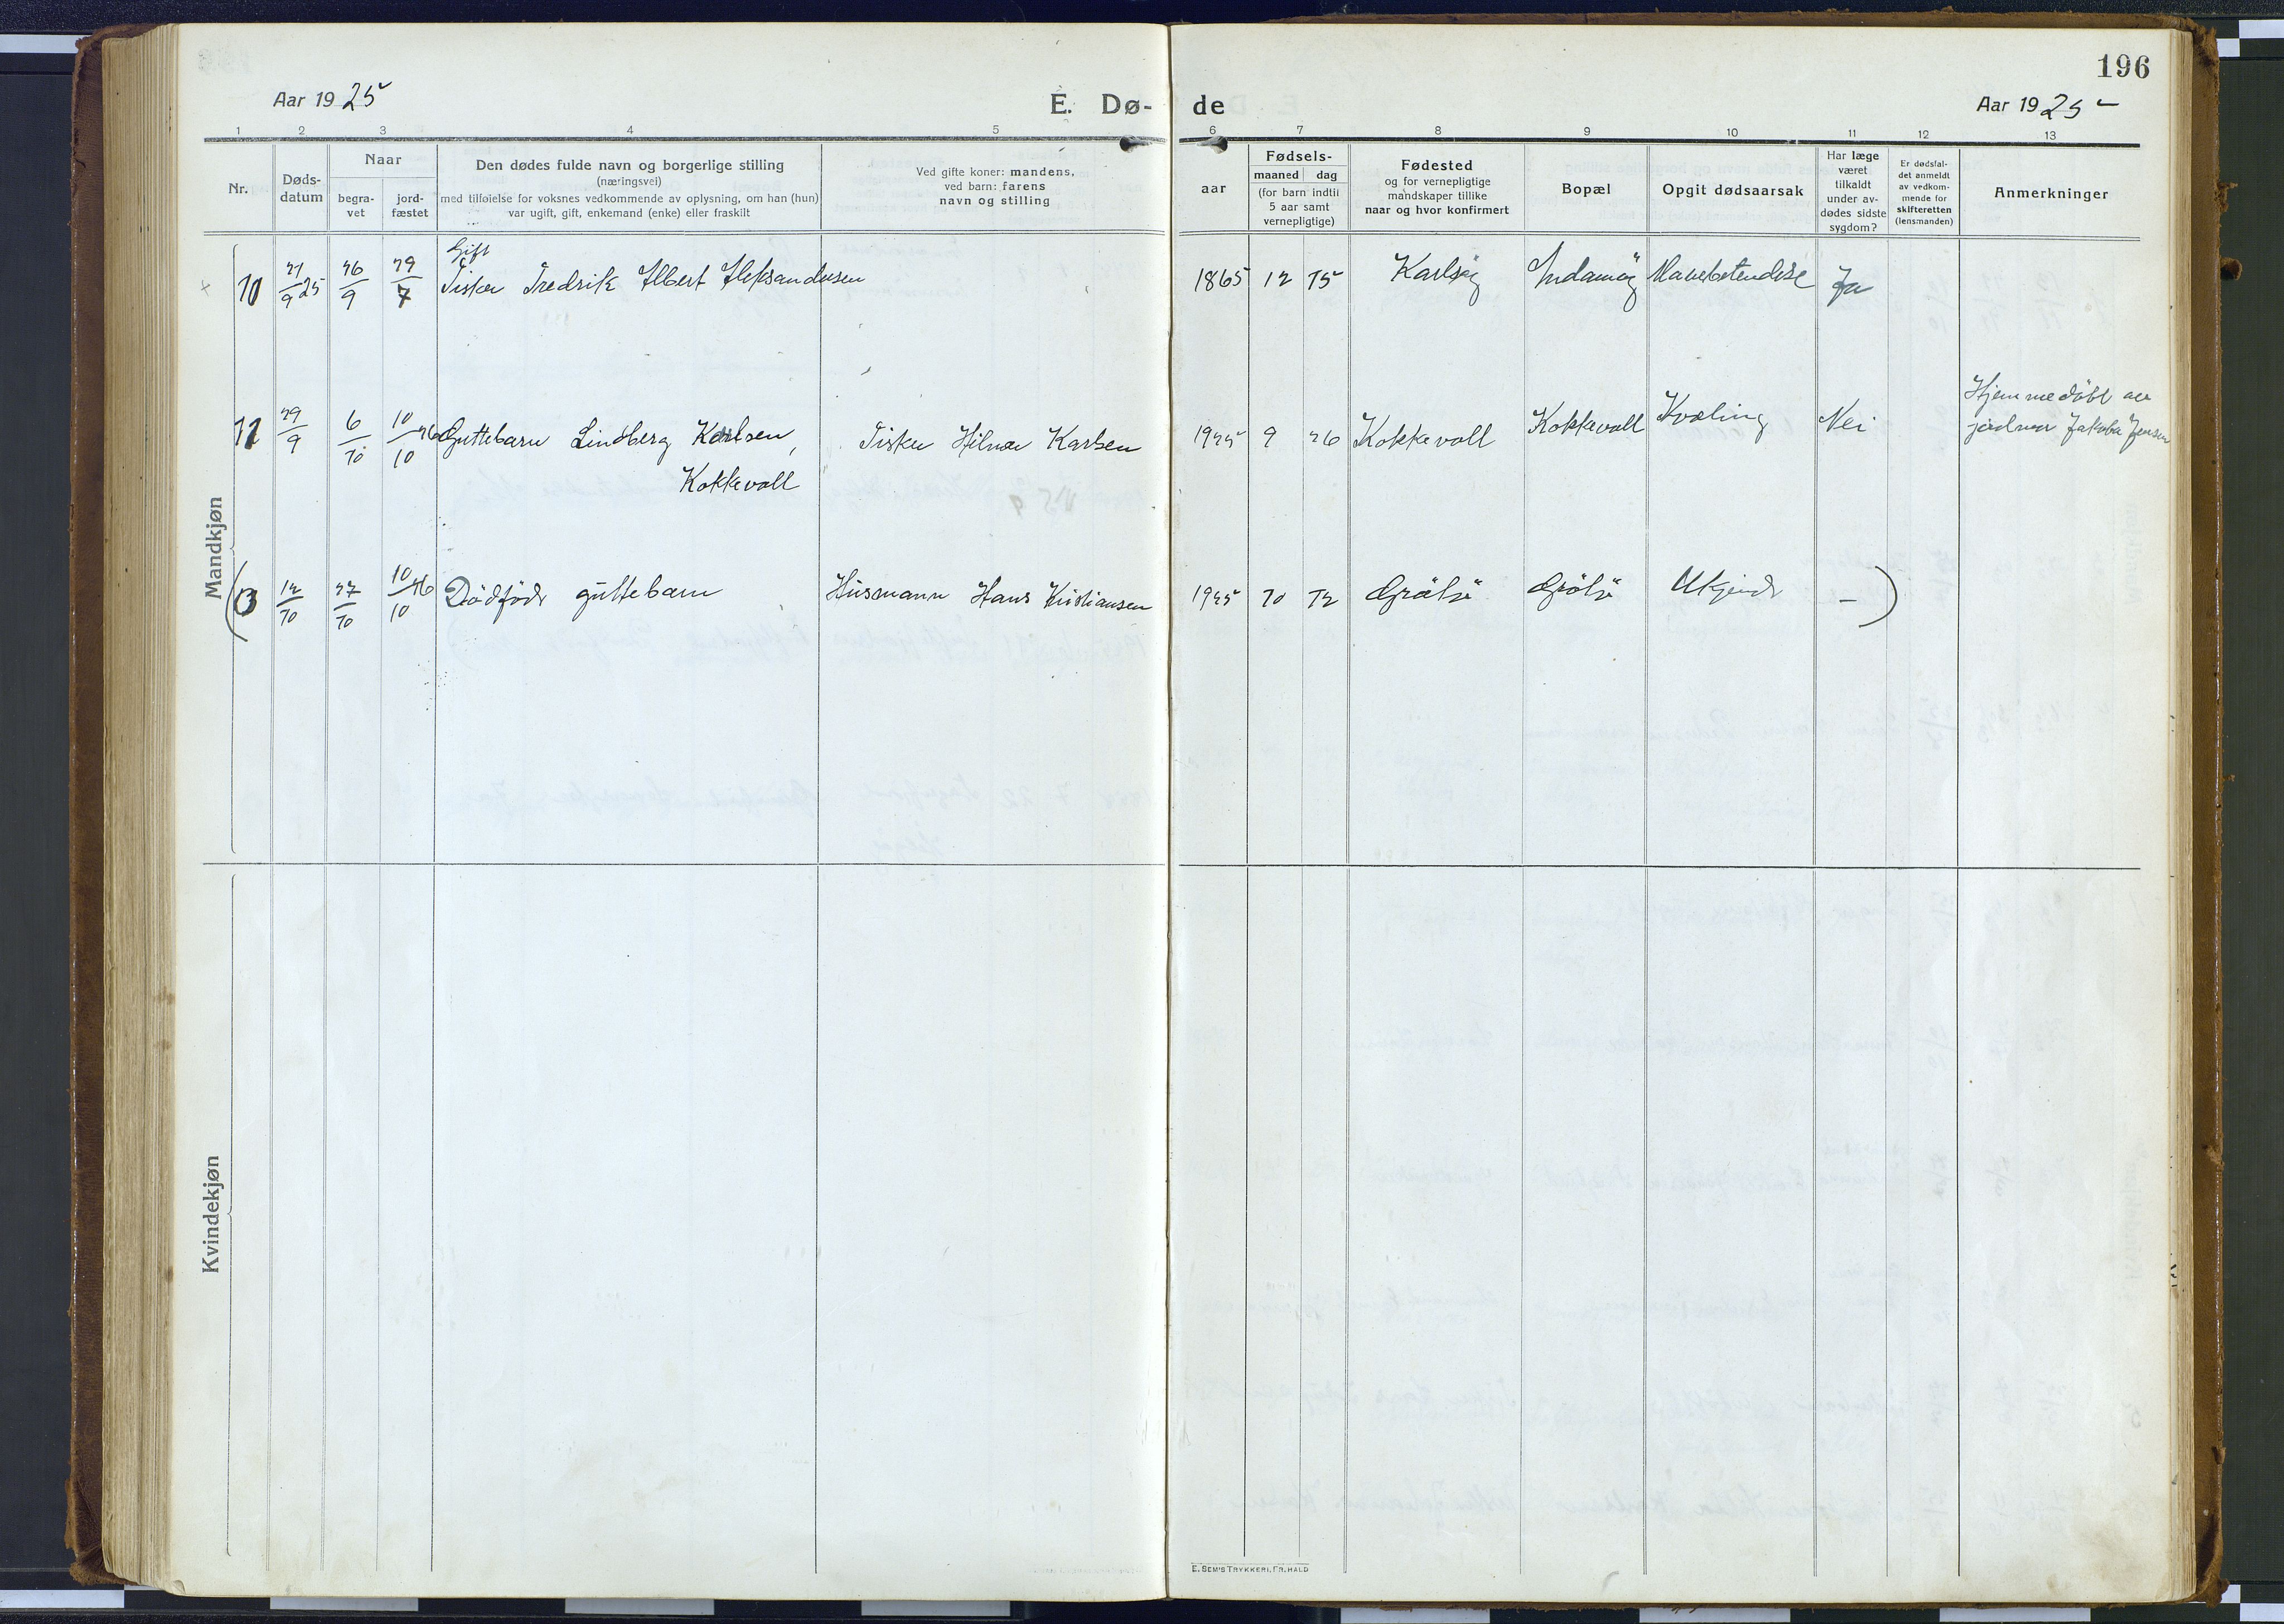 196
Aar 1925
E. Dø-
de
Aar 1925
1 2 3 4 5 6 7 8 9 10 11 12 13
Nr.
Døds-
datum
Naar
begra-
vet
jord-
fæstet
Den dødes fulde navn og borgerlige stilling
(næringsvei)
med tilføielse for voksnes vedkommende av oplysning, om han (hun)
var ugift, gift, enkemand (enke) eller fraskilt
Ved gifte koner: mandens,
ved barn: farens
navn og stilling
aar
Fødsels-
maaned dag
(for barn indtil
5 aar samt
vernepligtige)
Fødested
og for vernepligtige
mandskaper tillike
naar og hvor konfirmert
Bopæl
Opgit dødsaarsak
Har læge
været
tilkaldt
under av-
dødes sidste
sygdom?
Er dødsfal-
det anmeldt
av vedkom-
mende for
skifteretten
(lensmanden)
Anmerkninger
Mandkjøn
Gift
10 21/9 25 26/9 29/7 Fisker Fredrik Albert Aleksandersen 1865 12 15 Karlsøy Ja
29/9 6/10 10/10 26 Guttebarn Lindberg Karlsen, Fisker Hilmar Karlsen 1925 9 26 Kokkevoll Kokkevoll Kvæling Nei Hjemmedöbt av
Kokkevoll jordmor Jakoba Jensen
12/10 27/10 10/10 26 Dödfödt guttebarn Husmann Hans Kristiansen 1925 10 12 Grötö Ukjendt – )
Kvindekjøn
E. SEM'S TRYKKERI, FR.HALD